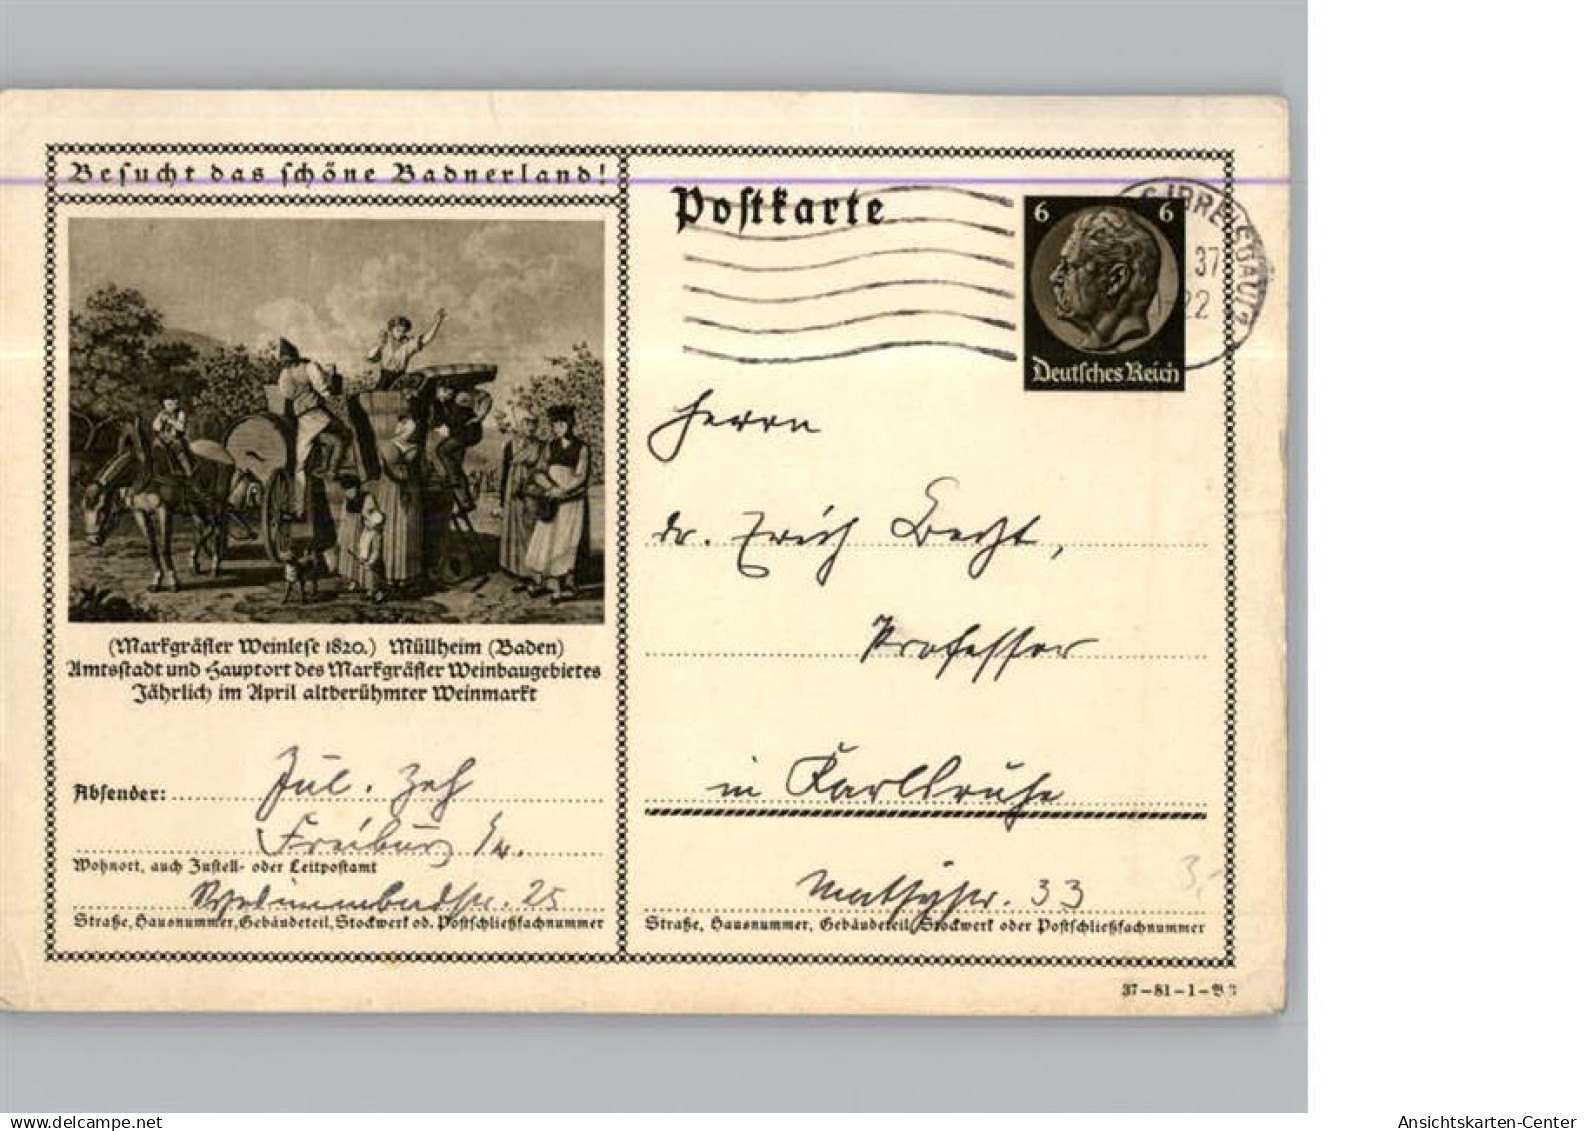 Besucht das schöne Badnerland!
(Markgräfler Weinlese 1820.) Müllheim (Baden)
Amtsstadt und Hauptort des Markgräfler Weinbaugebietes
Jährlich im April altberühmter Weinmarkt
Absender: Jul. Zeh
Freiburg
Wohnort, auch Zustell- oder Leitpostamt
25
Straße, Hausnummer, Gebäudeteil, Stockwerk od. Postschließfachnummer
Postkarte
6 6
Deutsches Reich
37
22
Herrn
Dr. Erich Becht,
Professor
in Karlsruhe
Mathystr. 33
Straße, Hausnummer, Gebäudeteil, Stockwerk oder Postschließfachnummer
3,-
37-81-1-B
Ansichtskarten-Center